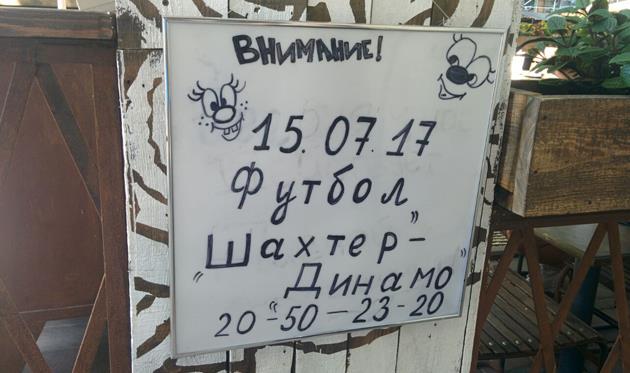 ВНИМАНИЕ!
15.07.17
Футбол
„Шахтер” -
„Динамо”
20-50-23-20